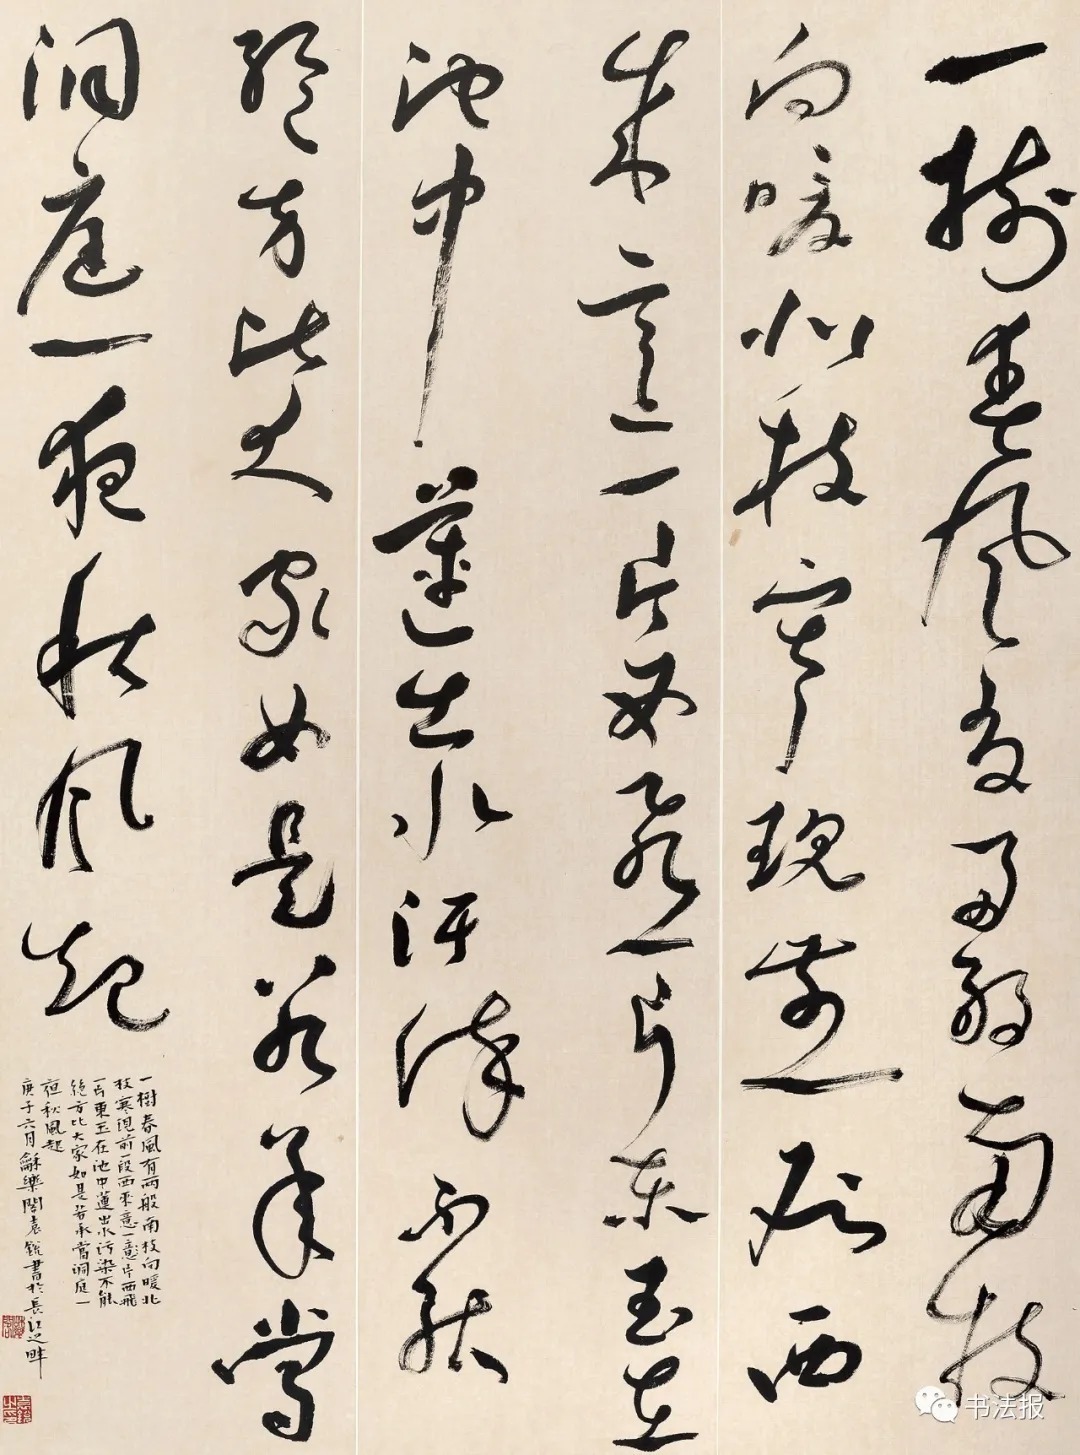 一樹春風有两般南枝
向暖北枝寒現前一段西
来意一片西飛一片东玉在
池中蓮出水汚染不能
絕方比大家如是若承當
洞庭一夜秋风起
一樹春風有两般南枝向暖北
枝寒現前一段西来意一片西飛
一片東玉在池中蓮出水污染不能
絕方比大家如是若承當洞庭一
夜秋風起
庚子六月龢樂閣袁銳書於長江之畔
书法报